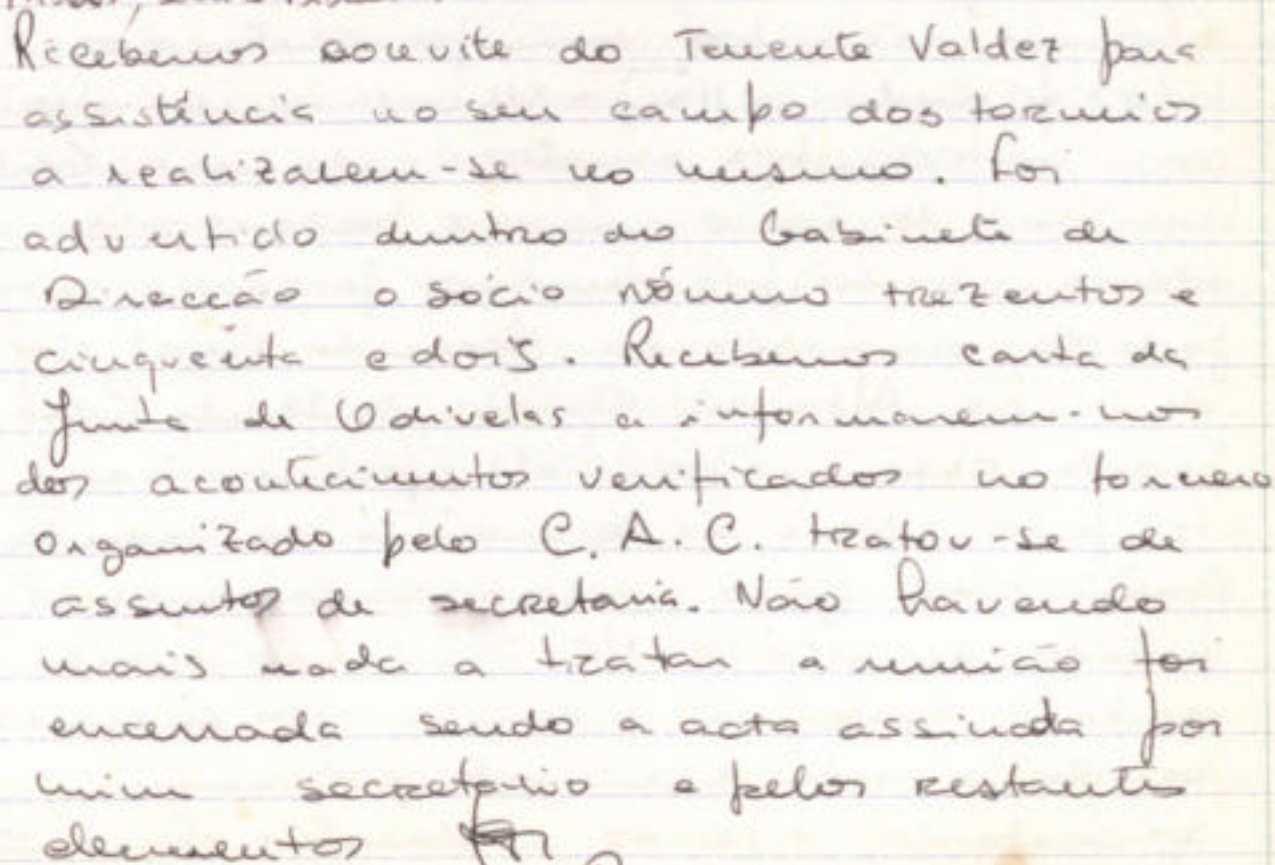 Recebemos convite do Tenente Valdez para
assistência no seu campo dos torneios
a realizarem-se no mesmo. Foi
advertido dentro do Gabinete da
Direcção o sócio número trezentos e
cinquenta e dois. Recebemos carta da
Junta de Odivelas a informarem-nos
dos acontecimentos verificados no torneio
organizado pelo C. A. C. tratou-se de
assuntos de secretaria. Não havendo
mais nada a tratar a reunião foi
encerrada sendo a acta assinada por
mim secretário e pelos restantes
elementos